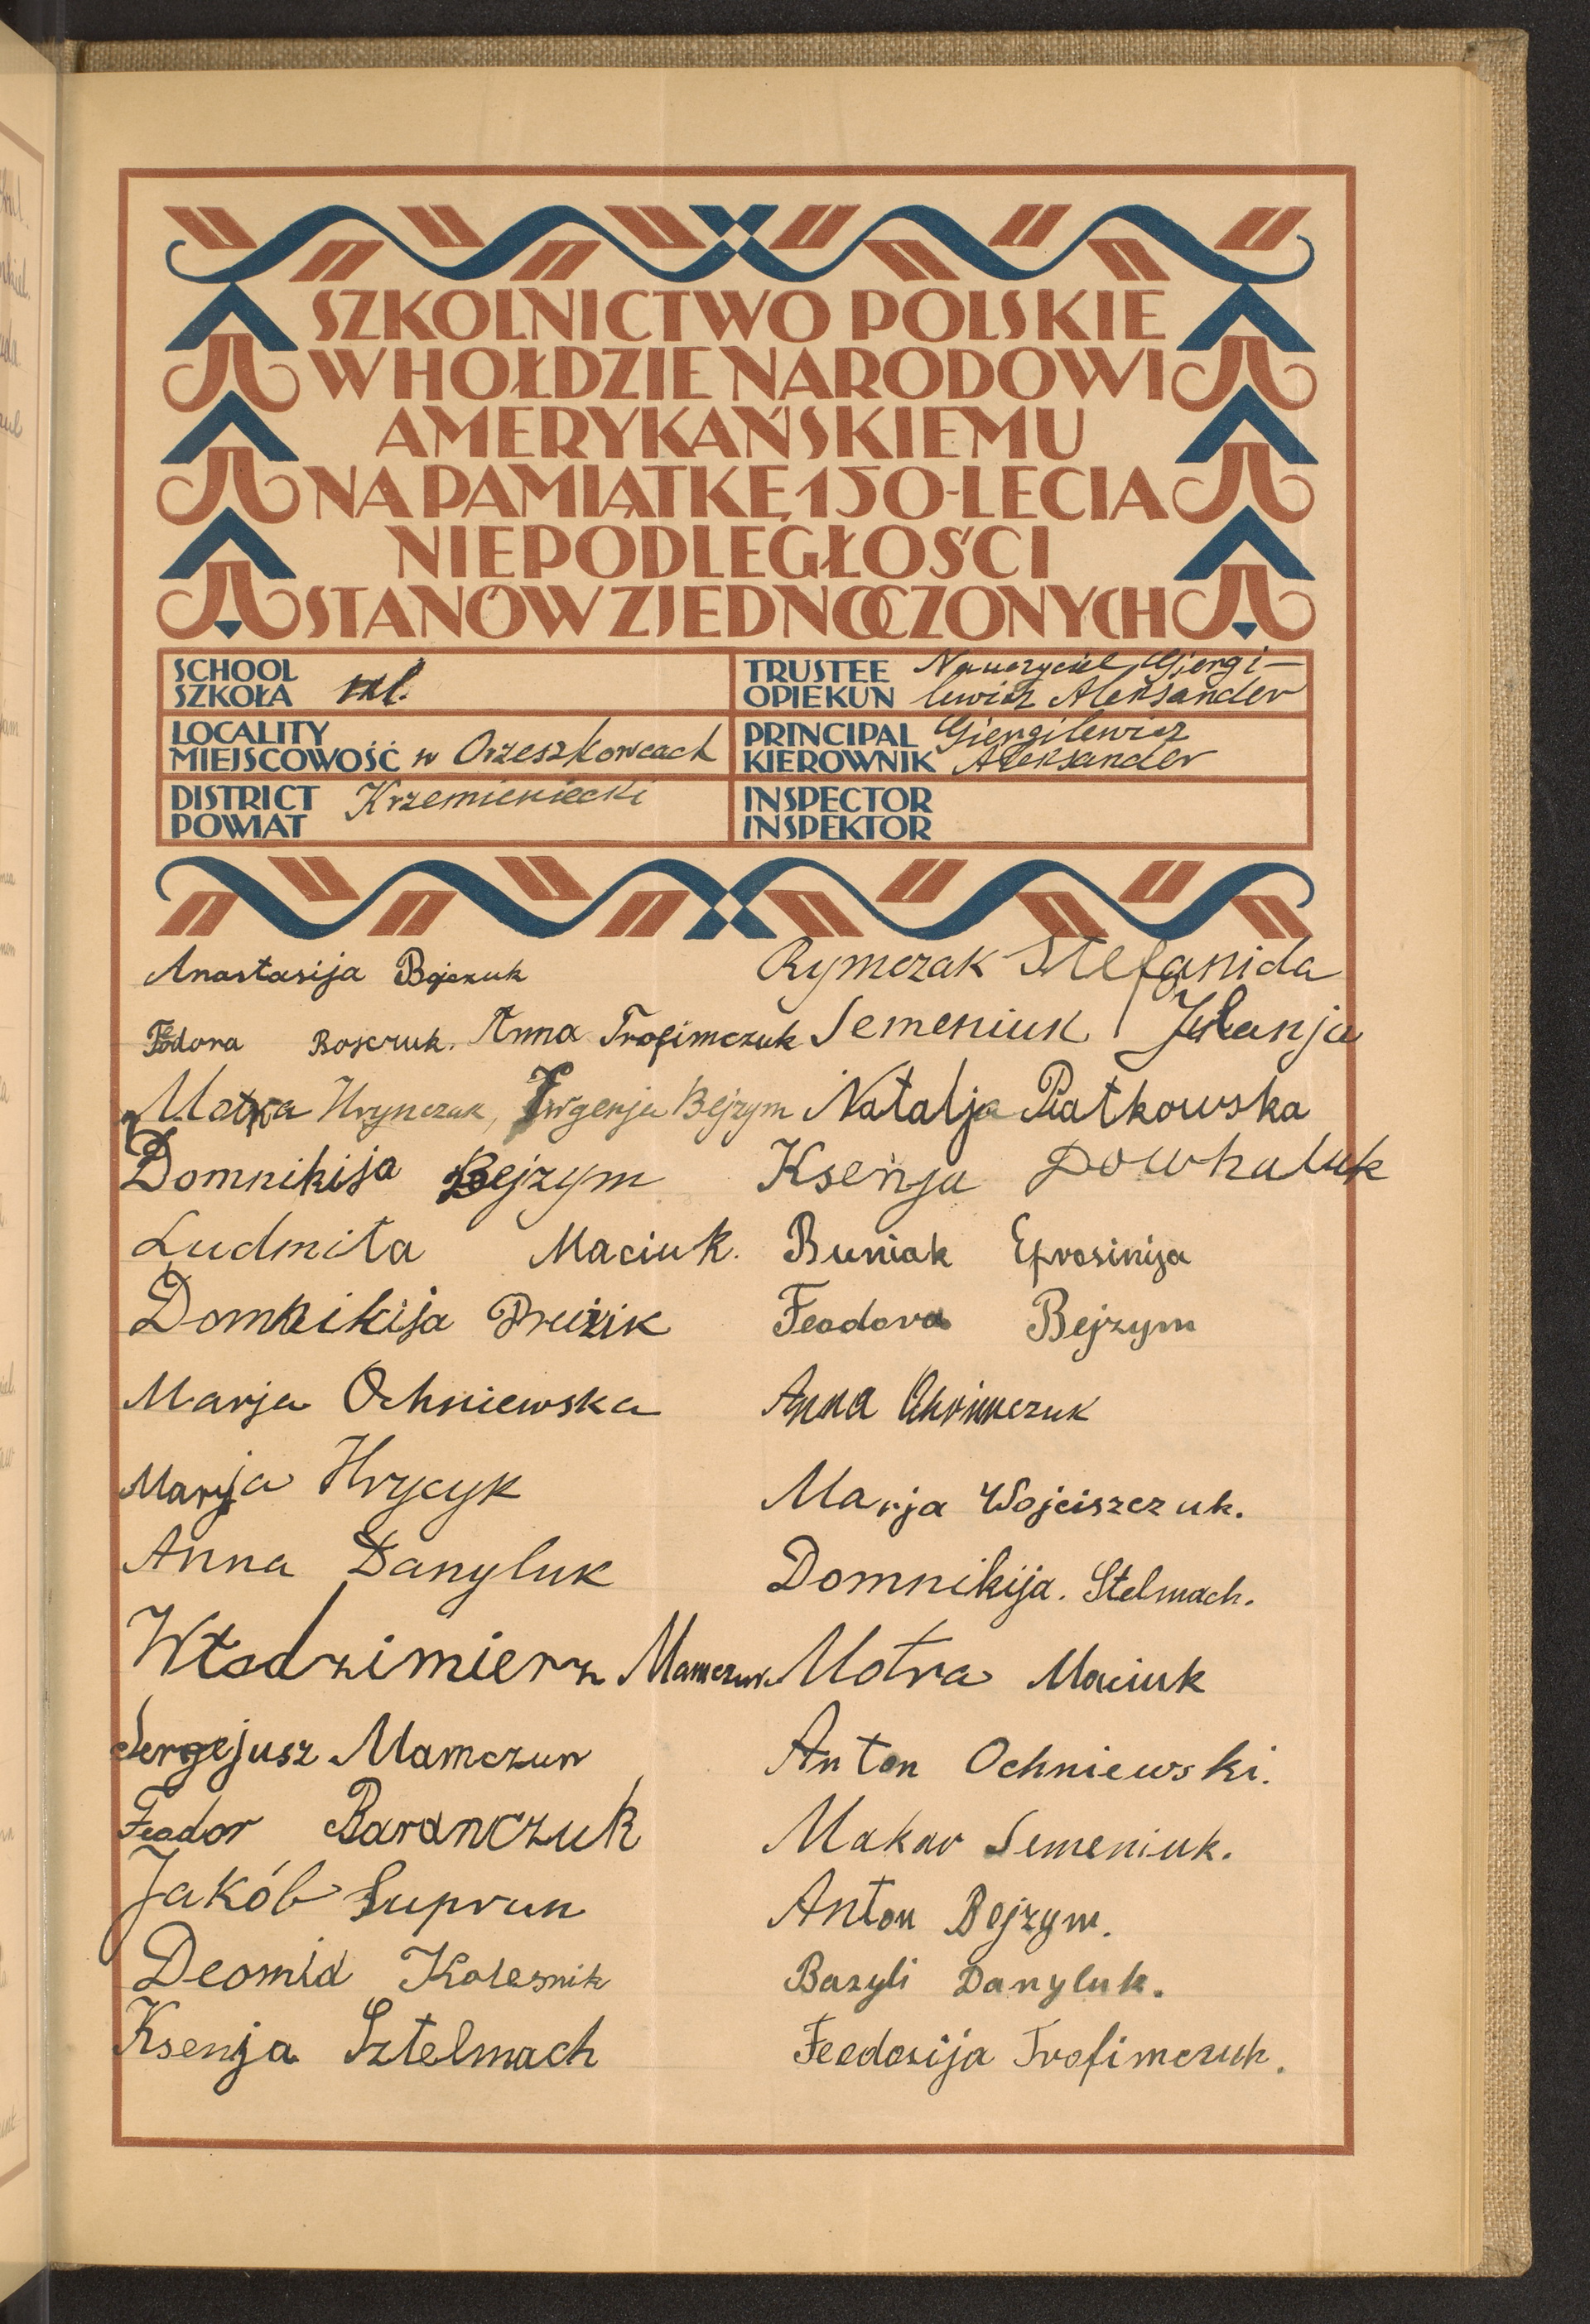 SZKOLNICTWO POLSKIE
W HOŁDZIE NARODOWI
AMERYKAŃSKIEMU
NA PAMIĄTKĘ 150-LECIA
NIEPODLEGŁOŚCI
STANÓW ZJEDNOCZONYCH
SCHOOL
SZKOŁA
LOCALITY
MIEJSCOWOŚĆ w Orzeszkowcach
DISTRICT
POWIAT Krzemieniecki
TRUSTEE Nauczyciel Giergi-
OPIEKUN lewicz Aleksander
PRINCIPAL Giergilewicz
KIEROWNIK Aleksander
INSPECTOR
INSPEKTOR
Anastasija Bojczuk
Rymczak Stefanida
Fedora Anna Trofimczuk
Semeniuk
Motra Hrynczuk, Bejzym
Natalja Piatkowska
Domnikija Bejzym
Ksenja Dowhaluk
Ludmiła Maciuk.
Buniak Efrosinija
Domnikija
Feodora Bejzym
Marja Ochniewska
Anna
Marja Hrycyk
Marja Wojciszczuk.
Anna Danyluk
Domnikija. Stelmach.
Włodzimierz Mamczur.
Motra Maciuk
Sergejusz Mamczur
Anton Ochniewski.
Feodor Baranczuk
Makar Semeniuk.
Jakób Suprun
Anton Bejzym.
Deomid Kolesnik
Bazyli Danyluk.
Ksenja Sztelmach
Feodosija Trofimczuk.